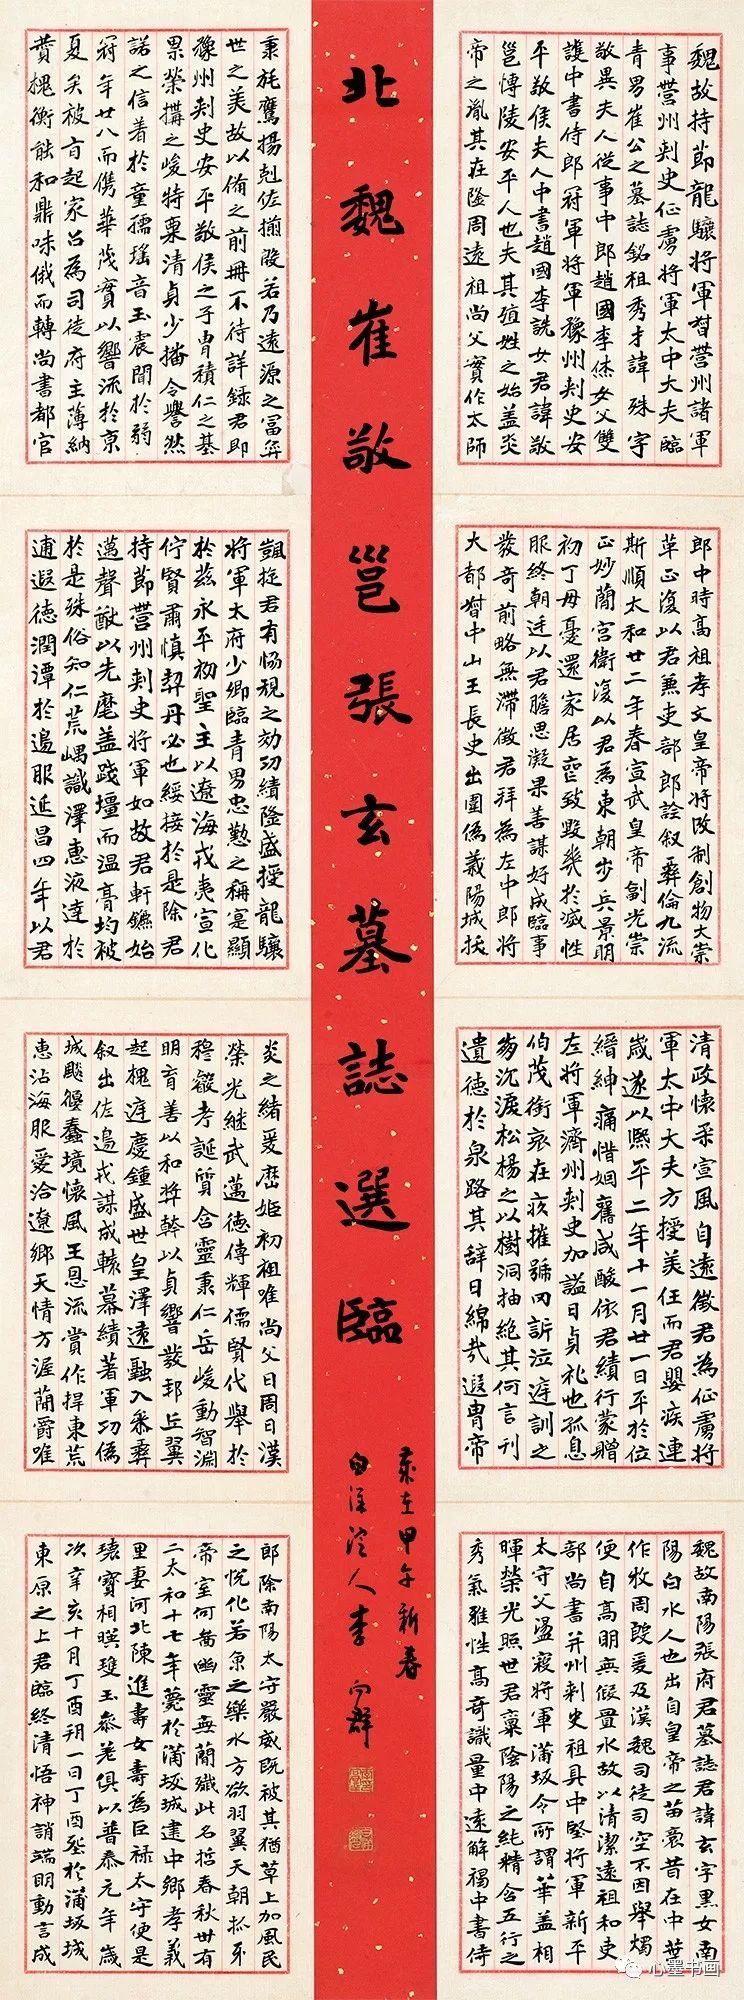 北魏崔敬邕張玄墓誌選臨
歲在甲午新春
白洋淀人李向群
魏故持節龍驤將軍督營州諸軍
事營州刺史征虜將軍太中大夫臨
青男崔公之墓誌銘祖秀才諱殊字
敬異夫人從事中郎趙國李烋女父雙
護中書侍郎冠軍將軍豫州刺史安
平敬侯夫人中書趙國李詵女君諱敬
邕博陵安平人也夫其殖姓之始蓋炎
帝之胤其在隆周遠祖尚父實作太師
秉旄鷹揚剋佐揃殷若乃遠源之富弈
世之美故以備之前冊不待詳錄君即
豫州刺史安平敬侯之子胄積仁之基
累榮搆之峻特稟清貞少播令譽然
諾之信著於童孺瑤音玉震聞於弱
冠年廿八而儁華茂實以響流於京
夏矣被旨起家召為司徒府主薄納
賛槐衡能和鼎味俄而轉尚書都官
郎中時高祖孝文皇帝將改制創物大崇
革正復以君兼吏部郎詮叙彝倫九流
斯順太和廿二年春宣武皇帝副光崇
正妙蕳宮衛復以君為東朝步兵景明
初丁母憂還家居喪致毀幾於滅性
服終朝廷以君膽思凝果善謀好成臨事
發奇前略無滯徵君拜為左中郎將
大都督中山王長史出圍偽義陽城拔
凱旋君有協規之効功績隆盛授龍驤
將軍太府少卿臨青男忠懃之稱寔顯
於茲永平初聖主以遼海戎夷宣化
佇賢肅慎契丹必也綏接於是除君
持節營州刺史將軍如故君軒鑣始
邁聲猷以先麾蓋踐壃而溫膏均被
於是殊俗知仁荒嵎識澤惠液達於
逋遐德潤潭於邊服延昌四年以君
清政懷柔宣風自遠徵君為征虜將
軍太中大夫方授美任而君嬰疾連
歲遂以熙平二年十一月廿一日卒於位
縉紳痛惜姻舊咸酸依君績行蒙贈
左將軍濟州刺史加謚曰貞礼也孤息
伯茂銜哀在疚摧號罔訴泣庭訓之
崩沉淚松楊之以樹洞抽絕其何言刊
遺德於泉路其辞曰綿哉遐胄帝
炎之緒爰歷姬初祖唯尚父曰周曰漢
榮光継武蕆德傳輝儒賢代舉於
穆叡考誕質含靈秉仁岳峻動智淵
明育善以和獎幹以貞響發邦丘翼
起槐庭慶鍾盛世皇澤遠融入參彝
叙出佐邊戎謀成轅幕績著軍功偽
城颷偃蠢境懷風王恩流賞作捍東荒
惠沾海服愛洽遼鄉天情方渥蕳爵唯
魏故南陽張府君墓誌君諱玄字黑女南
陽白水人也出自皇帝之苗裔昔在中葉
作牧周殷爰及漢魏司徒司空不因舉燭
便自高明無假置水故以清潔遠祖和吏
部尚書并州刺史祖具中堅將軍新平
太守父盪寇將軍蒲坂令所謂華蓋相
暉榮光照世君稟陰陽之純精含五行之
秀氣雅性高奇識量中遠解褐中書侍
郎除南陽太守嚴威既被其猶草上加風民
之悅化若魚之樂水方欲羽翼天朝抓牙
帝室何啚幽靈無蕳殲此名哲春秋卅有
二太和十七年薨於蒲坂城建中鄉孝義
里妻河北陳進壽女壽為巨祿太守便是
瓌寶相暎琁玉參差俱以普泰元年歲
次辛亥十月丁酉朔一日丁酉塟於蒲坂城
東原之上君臨終清悟神誚端明動言成
心墨书画